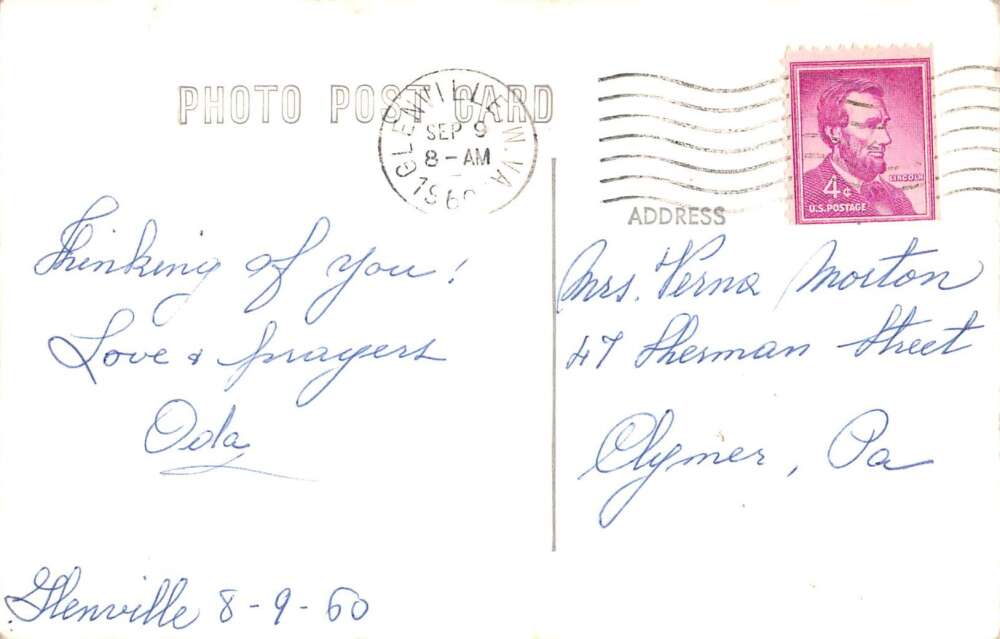 PHOTO POST CARD
GLENVILLE W.VA.
SEP 9
8-AM
1960
4¢
LINCOLN
U.S. POSTAGE
ADDRESS
Thinking of you!
Love & prayers
Oda
Glenville 8-9-60
Mrs. Verna Morton
47 Sherman Street
Clymer, Pa